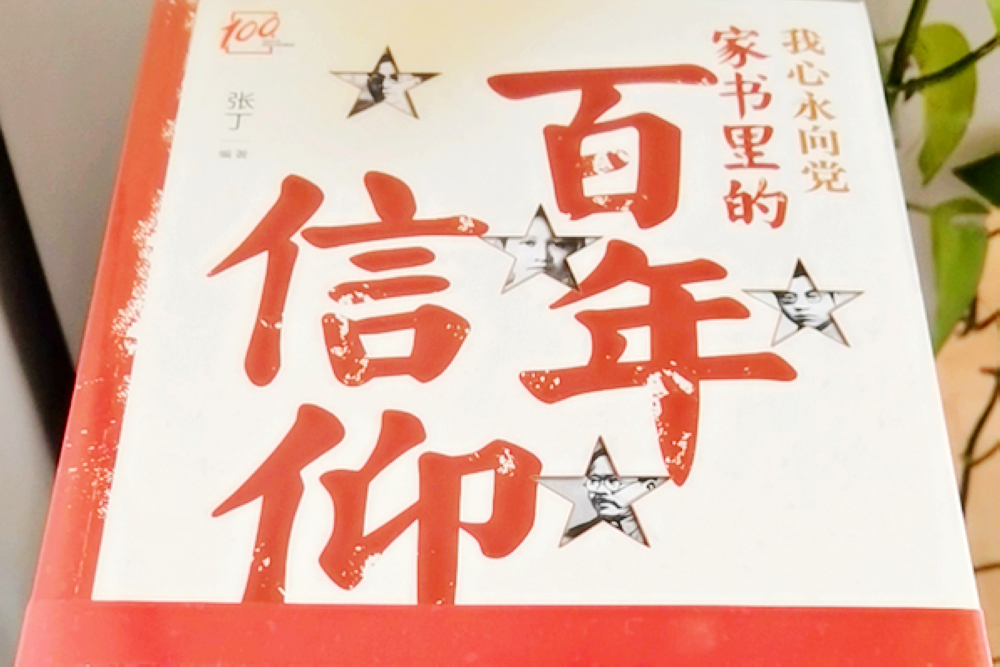 我心永向党
家书里的
百年
信仰
100
张丁
编著